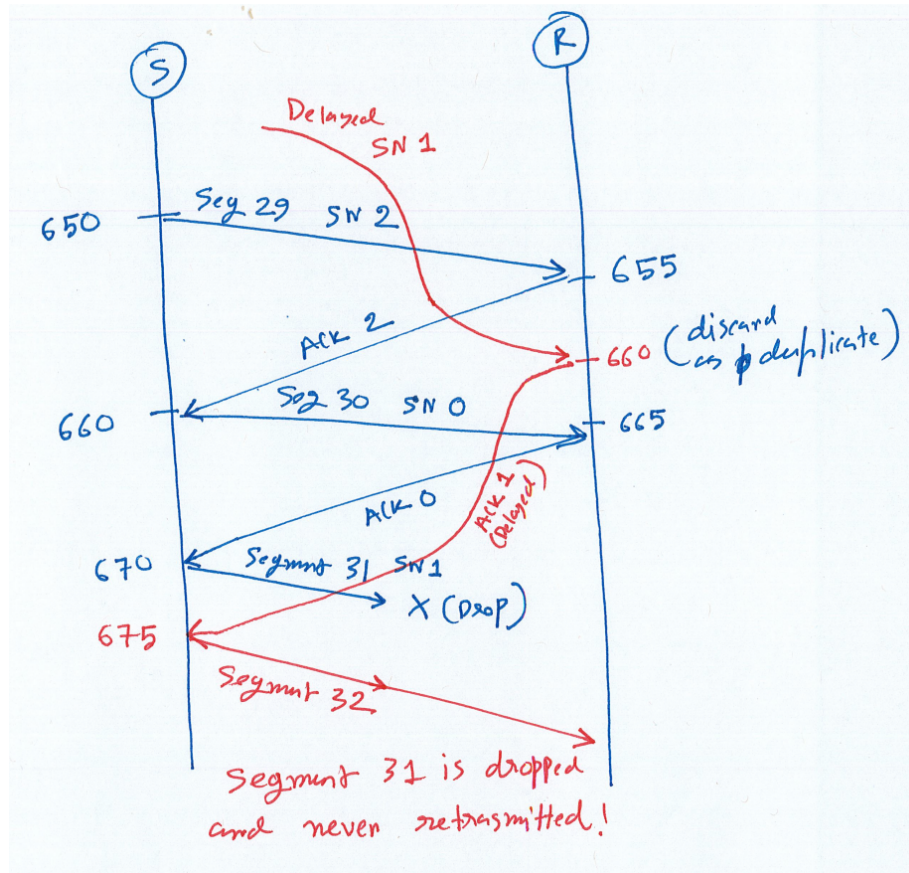 S
R
Delayed
SN 1
650
Seg 29 SN 2
655
Ack 2
660 (discard
as duplicate)
660
Seg 30 SN 0
665
Ack 0
Ack 1
(Delayed)
670
Segmnt 31 SN1
X (Drop)
675
Segmnt 32
Segment 31 is dropped
and never retrasmitted!